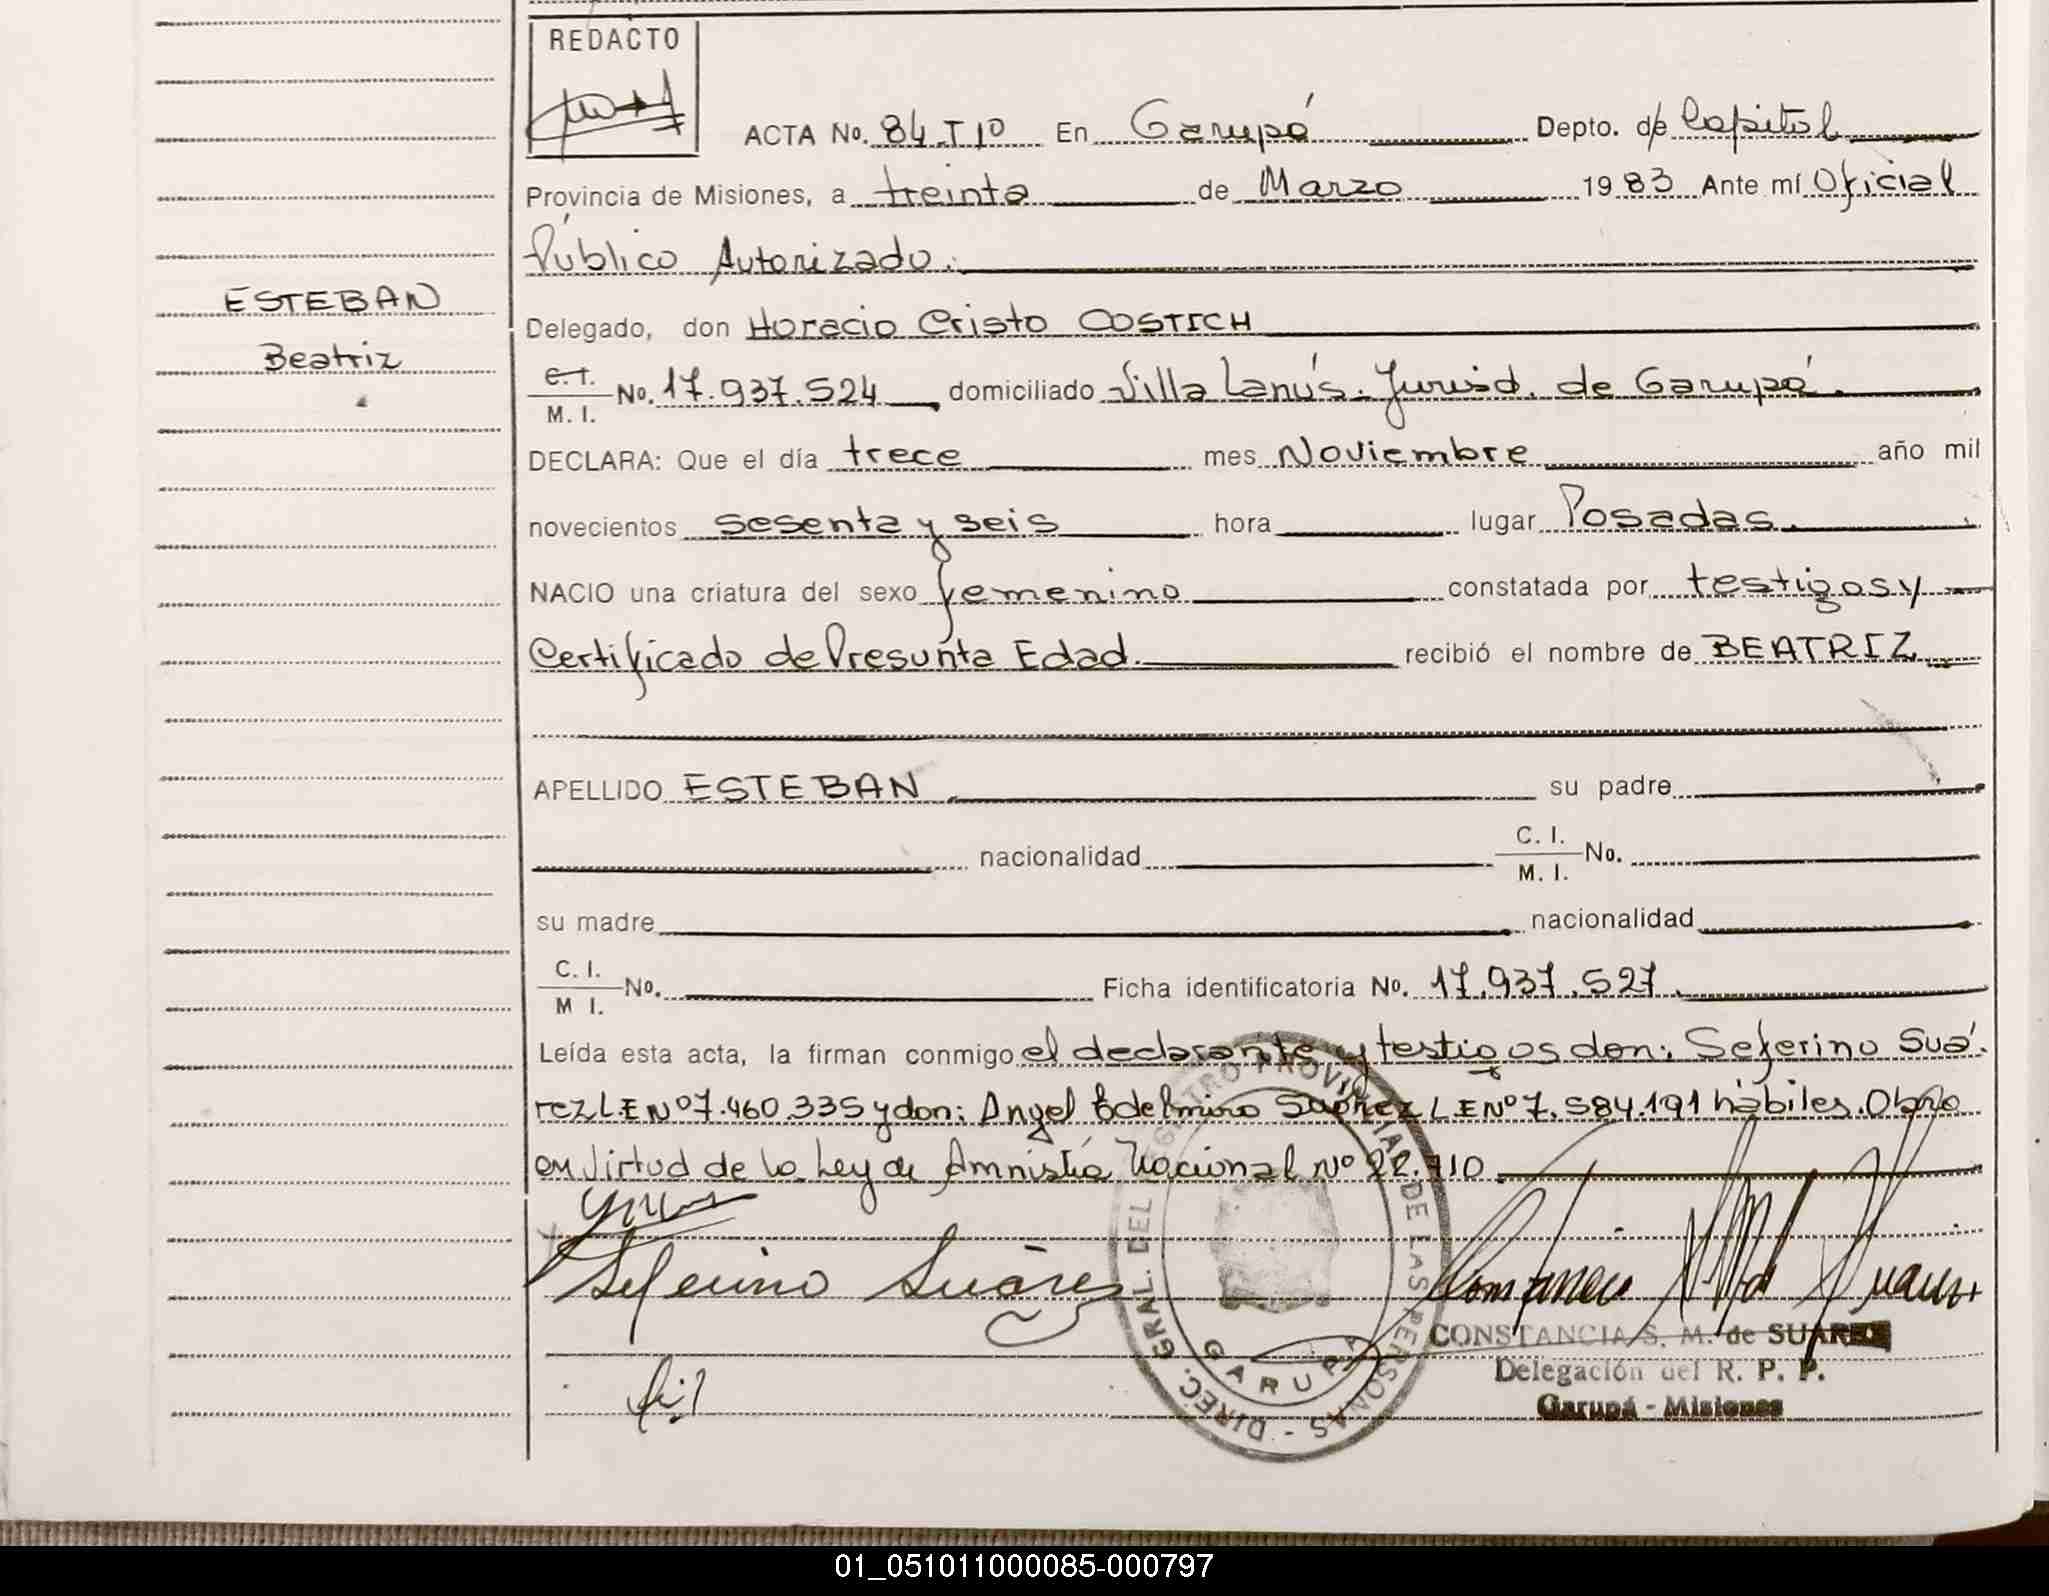 REDACTO
ACTA No. 84.T1º En Garupá Depto. de Capital
Provincia de Misiones, a treinta de Marzo 1983 Ante mí Oficial
Público Autorizado.
ESTEBAN
Beatriz
Delegado, don Horacio Cristo COSTICH
C.I. M. I. No. 17.937.524 domiciliado Villa Lanús. Jurisd. de Garupá.
DECLARA: Que el día trece mes Noviembre año mil
novecientos sesenta y seis hora lugar Posadas.
NACIO una criatura del sexo femenino constatada por testigos y
Certificado de Presunta Edad. recibió el nombre de BEATRIZ
APELLIDO ESTEBAN su padre
nacionalidad C. I. M. I. No.
su madre nacionalidad
C. I. M I. No. Ficha identificatoria No. 17.937.527.
Leída esta acta, la firman conmigo el declarante y testigos don: Seferino Suá
rez L.E Nº 7.460.335 y don: Angel Edelmiro Suárez L E Nº 7.584.191 hábiles. Obro
en virtud de la Ley de Amnistía Nacional Nº 22.710
Seferino Suárez
DIREC. GRAL. DEL REGISTRO PROVINCIAL DE LAS PERSONAS -
GARUPA
CONSTANCIA S. M. de SUAREZ
Delegación del R. P. P.
Garupá - Misiones
01_051011000085-000797